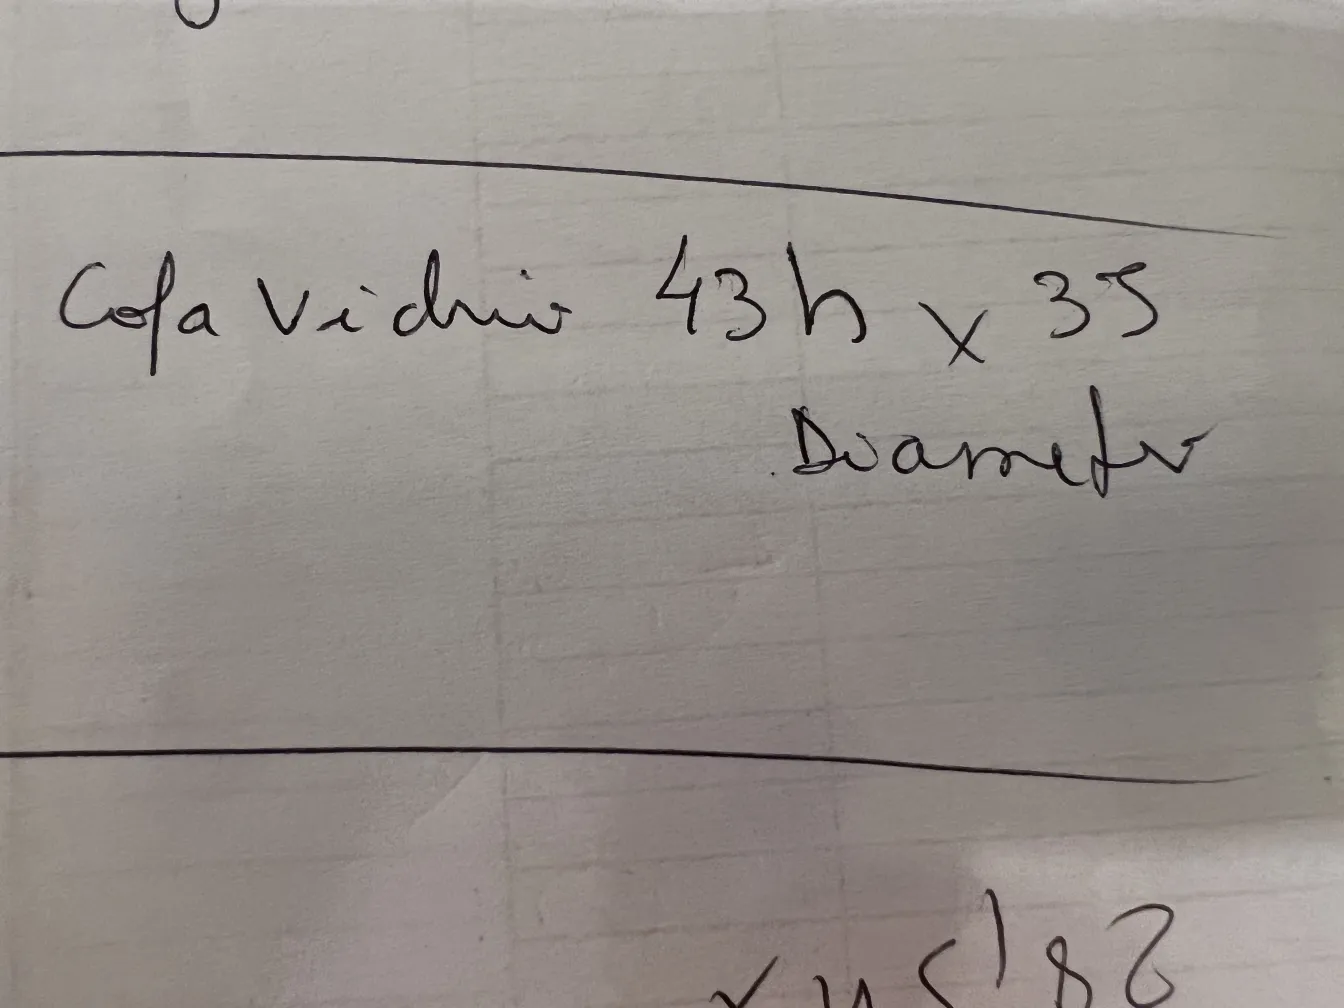 Copa Vidrio 43h x 35
Diametro